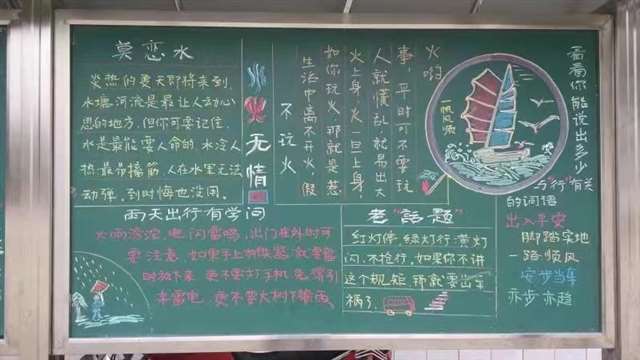 莫恋水
炎热的夏天即将来到,
水塘,河流是最让人动心
思的地方,但你可要记住,
水是最能要人命的.水冷人
热最 搞筋,人在水里无法
动弹.到时悔也没用.
水火无情
不玩火
生活中离不开火,假
如你玩火,那就是惹
火上身,火一旦上身,
人就慌乱,就易出大
事,平时可不要玩
火啊
一帆风顺
看看你能说出多少
与"行"有关
的词语
出入平安
脚踏实地
一路顺风
安步当车
亦步亦趋
雨天出行有学问
大雨滂沱,电闪雷鸣,出门在外时可
要注意.如果手上 铁器就要
时放下来.更不要打手机,免得引
来雷电,更不要大树下躲雨.
老"話题"
红灯停,绿灯行,黄灯
闪,不抢行,如果你不讲
这个规矩,那就要出车
祸了.